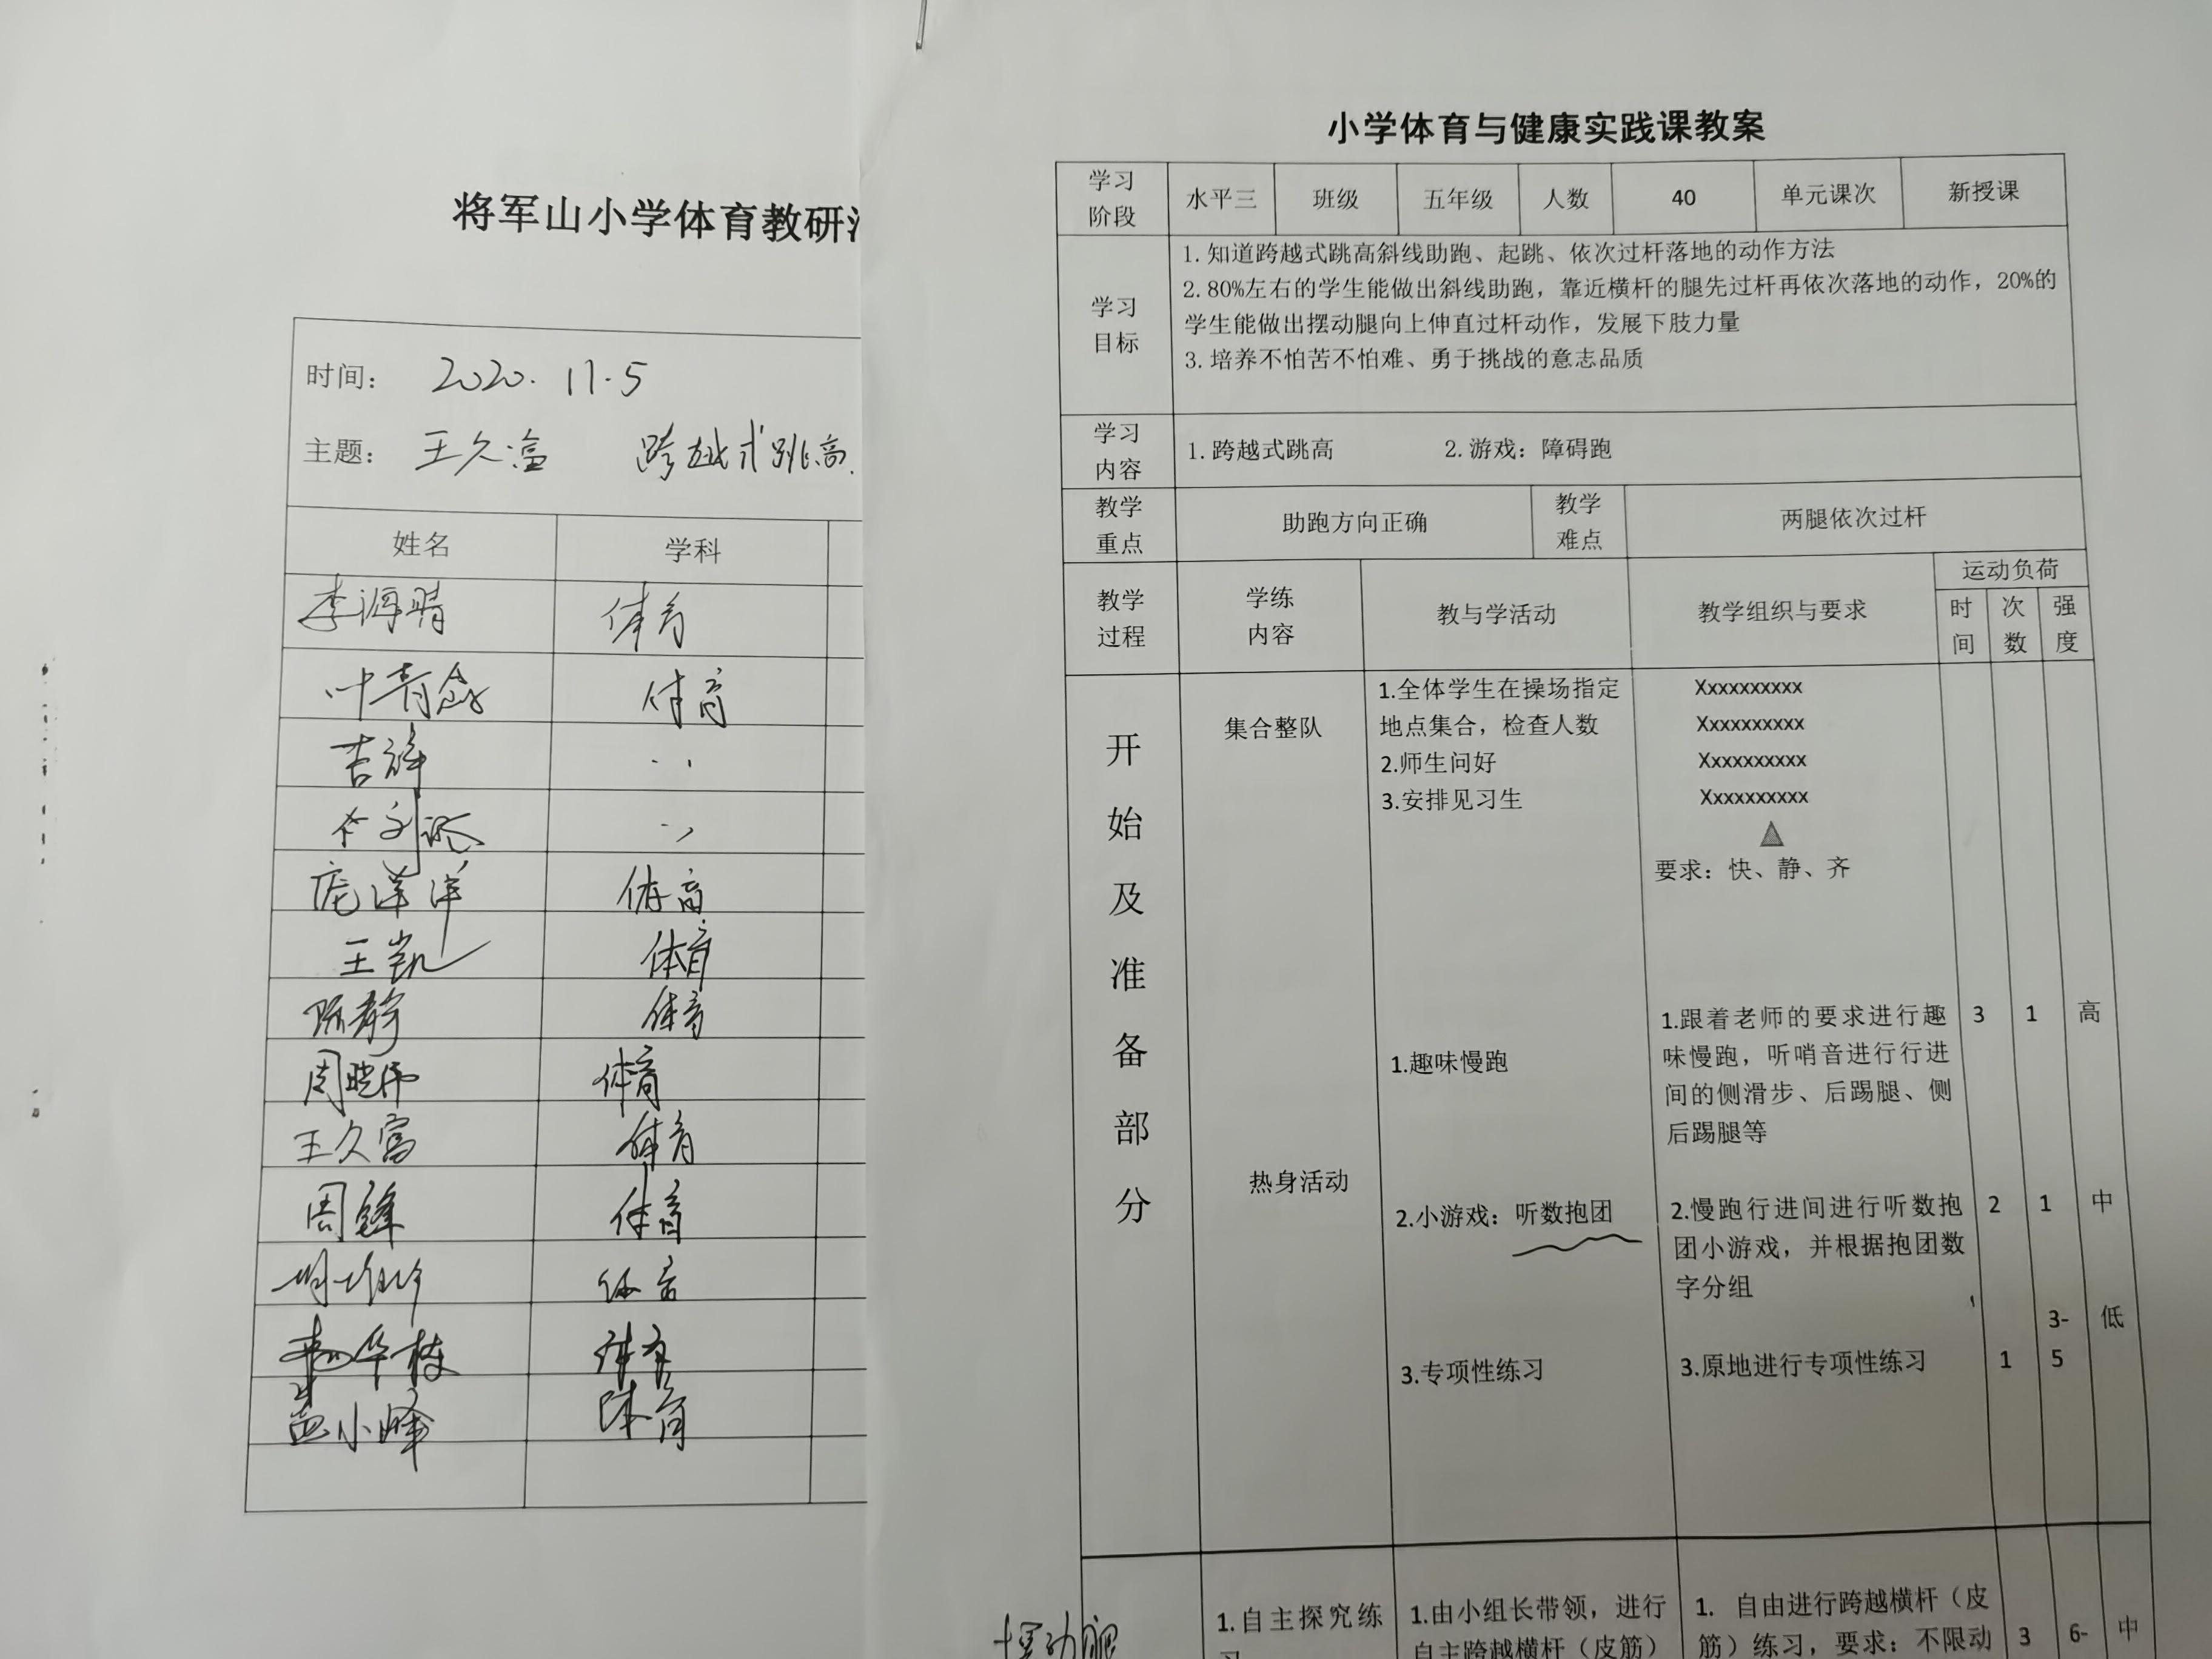 将军山小学体育教研
时间： 2020.11.5
主题： 王久富 跨越式跳高.
姓名 学科
李海晴 体育
叶青 体育
吉祥 〃
〃
庞洋洋 体育
王凯 体育
陈静 体育
周晓伟 体育
王久富 体育
周锋 体育
体育
华栋 体育
孟小峰 体育
小学体育与健康实践课教案
学习阶段 水平三 班级 五年级 人数 40 单元课次 新授课
学习目标
1.知道跨越式跳高斜线助跑、起跳、依次过杆落地的动作方法
2.80%左右的学生能做出斜线助跑，靠近横杆的腿先过杆再依次落地的动作，20%的
学生能做出摆动腿向上伸直过杆动作，发展下肢力量
3.培养不怕苦不怕难、勇于挑战的意志品质
学习内容 1.跨越式跳高 2.游戏：障碍跑
教学重点 助跑方向正确 教学难点 两腿依次过杆
教学过程 学练内容 教与学活动 教学组织与要求 运动负荷
时间 次数 强度
开始及准备部分
集合整队
1.全体学生在操场指定
地点集合，检查人数
2.师生问好
3.安排见习生
Xxxxxxxxxx
Xxxxxxxxxx
Xxxxxxxxxx
Xxxxxxxxxx
要求：快、静、齐
热身活动
1.趣味慢跑
1.跟着老师的要求进行趣 3 1 高
味慢跑，听哨音进行行进
间的侧滑步、后踢腿、侧
后踢腿等
2.小游戏：听数抱团
2.慢跑行进间进行听数抱 2 1 中
团小游戏，并根据抱团数
字分组
3.专项性练习
3.原地进行专项性练习 1 3-5 低
摆动腿
1.自主探究练
习
1.由小组长带领，进行
自主跨越横杆（皮筋）
1. 自由进行跨越横杆（皮
筋）练习，要求：不限动 3 6- 中